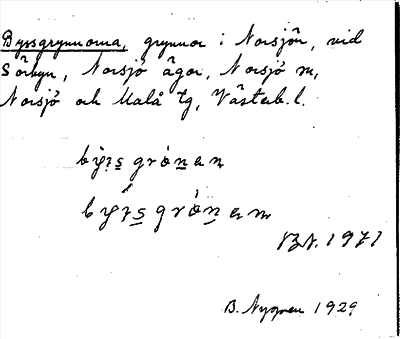 Byssgrynnorna, grynnor i Norsjön, vid
Sörbyn, Norsjö ägor, Norsjö sn,
Norsjö och Malå tg, Västerb. l.
B.N. 1971
B. Nygren 1929